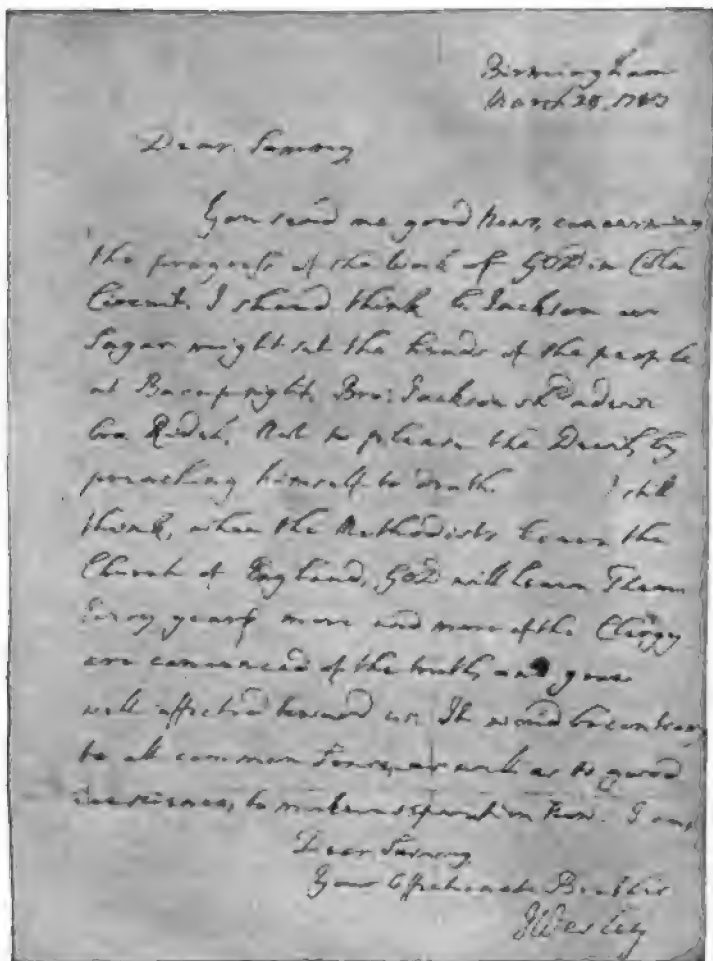 Birmingham
March 24, 1787
Dear Sammy
You send me good news, concerning
the progress of the work of GOD in Coln
Circuit. I should think B. Jackson or
Sagar might set the heads of the people
at Bacup right. Bro: Jackson shd advise
Bro Ridel, not to please the Devil, by
preaching himself to death. I still
think, when the Methodists leave the
Church of England, GOD will leave Them
Every year more and more of the Clergy
are convinced of the truth, and grow
well affected toward us. It would be contrary
to all common Sense, as well as to good
conscience, to make a separation now. I am,
Dear Sammy
Your Affectionate Brother
JWesley